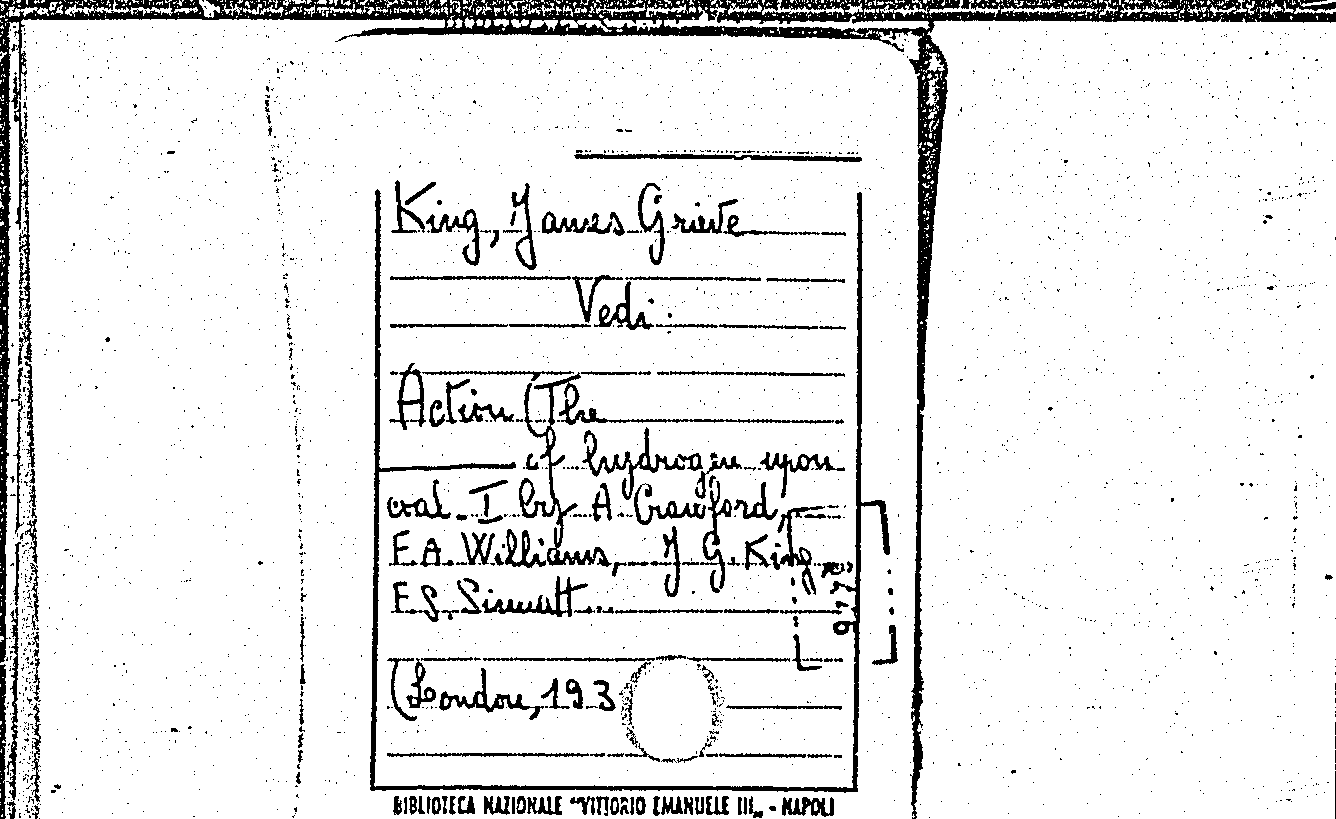 King, James Grieve
Vedi:
Action (The
of hydrogen upon
coal. I by A Crawford,
F.A. Williams, J. G. King
F.S. Sinnatt...
(London, 193
BIBLIOTECA NAZIONALE "VITTORIO EMANUELE III" - NAPOLI